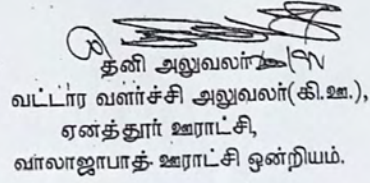 தனி அலுவலர்
வட்டார வளர்ச்சி அலுவலர்(கி.ஊ.),
ஏனத்தூர் ஊராட்சி,
வாலாஜாபாத் ஊராட்சி ஒன்றியம்.